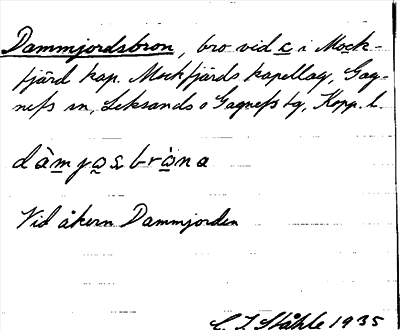 Dammjordsbron, bro vid c i Mock-
fjärd kap. Mockfjärds kapellag, Gag-
nefs sn, Leksands o Gagnefs tg, Kopp. l.
Vid åkern Dammjorden
C. I. Ståhle 1935